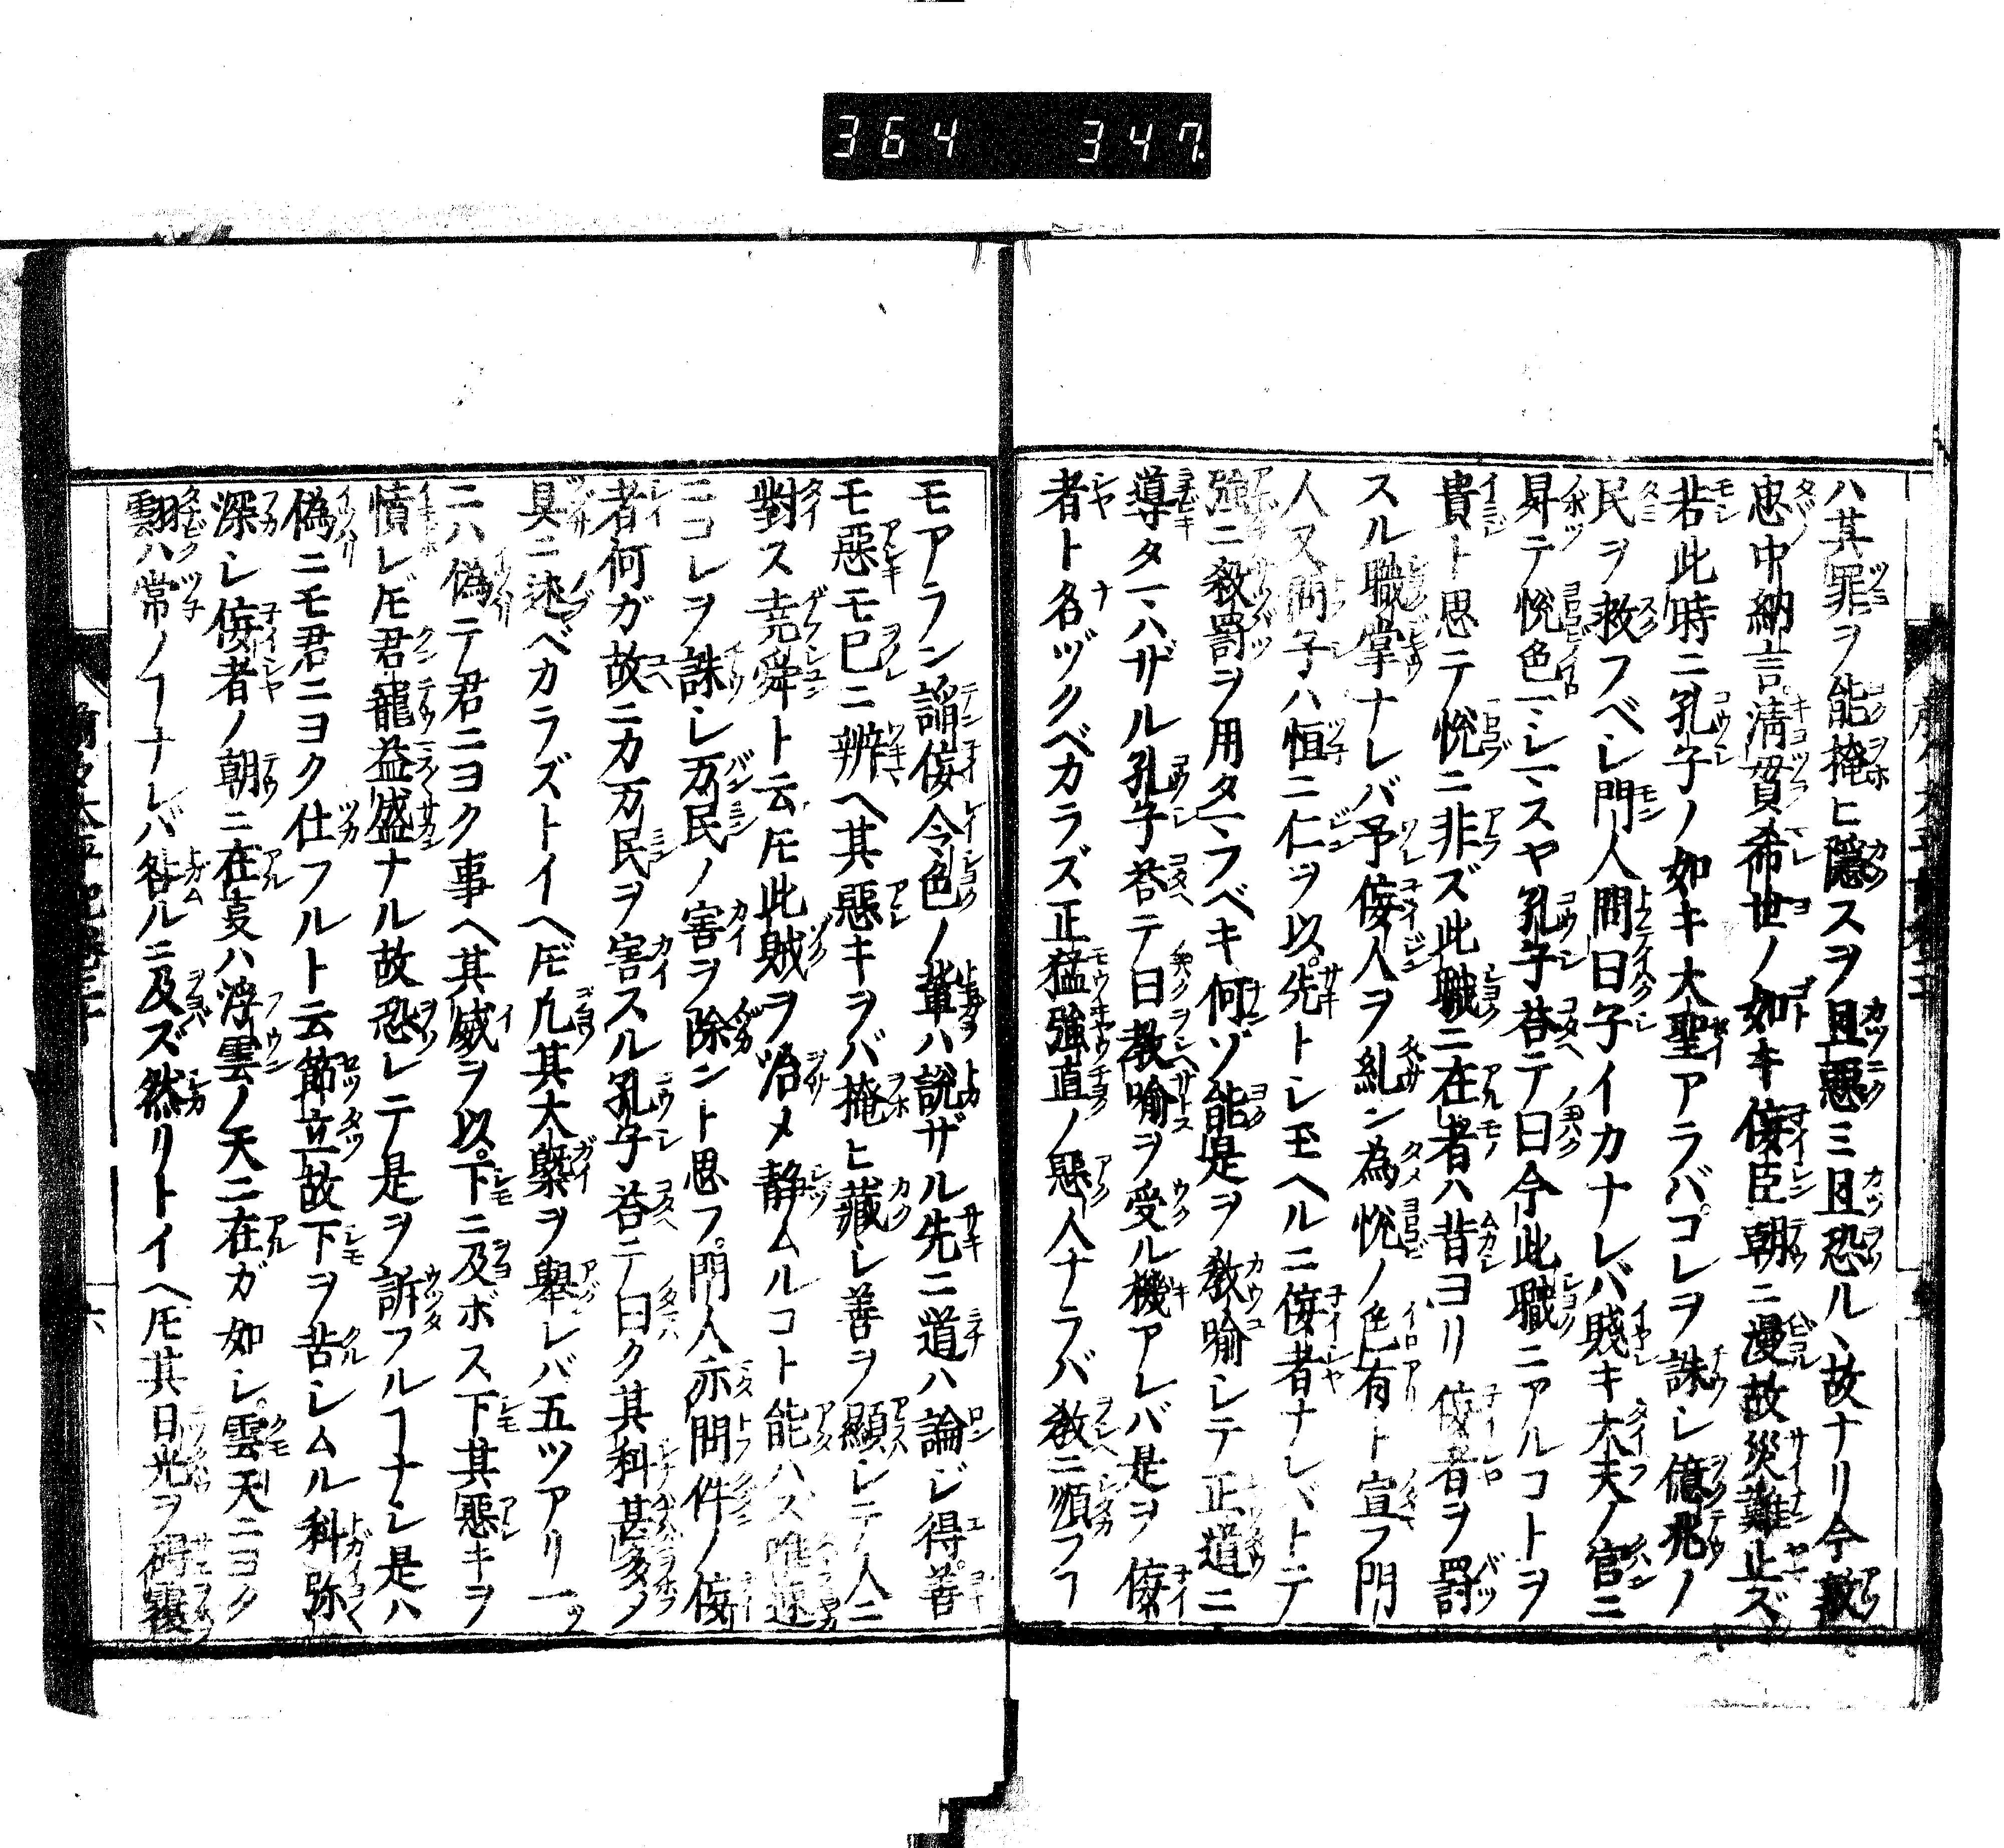 364 347.
ハ其罪ヲ能掩ヒ隠スヲ且悪ミ且恐ル、故ナリ今敦
忠中納言清貧希世ノ如キ佞臣朝ニ漫故災難止ズ
若此時ニ孔子ノ如キ大聖アラバコレヲ誅シ億兆ノ
民ヲ救フベシ門人問曰子イカナレバ賤キ大夫ノ官ニ
昇テ悦色マシマスヤ孔子答テ曰今此職ニアルコトヲ
貴ト思テ悦ニ非ズ此職ニ在者ハ昔ヨリ佞者ヲ罸
スル職掌ナレバ予佞人ヲ糺ン為悦ノ色有ト宣フ門
人又問子ハ恒ニ仁ヲ以先トシ玉ヘルニ佞者ナレバトテ
強ニ殺罸ヲ用タマフベキ何ゾ能是ヲ教喩シテ正道ニ
導タマハザル孔子答テ曰教喩ヲ受ル機アレバ是ヲ佞
者ト名ヅクベカラズ正猛強直ノ悪人ナラバ教ニ順フヿ
モアラン諂佞令色ノ輩ハ説ザル先ニ道ハ論ジ得善
モ悪モ已ニ辨ヘ其悪キヲバ掩ヒ藏シ善ヲ顯シテ人ニ
對ス堯舜ト云ドモ此賊ヲ治メ静ムルコト能ハズ唯速
ニコレヲ誅シ万民ノ害ヲ除ント思フ門人亦問件ノ佞
者何ガ故ニカ万民ヲ害スル孔子答テ曰ク其科甚多メ
具ニ述ベカラズトイヘドモ凡其大槩ヲ擧レバ五ツアリ一ツ
ニハ偽テ君ニヨク事ヘ其威ヲ以下ニ及ボス下其悪キヲ
憤レドモ君寵益盛ナル故恐レテ是ヲ訴フルヿナシ是ハ
偽ニモ君ニヨク仕フルト云節立故下ヲ苦シムル科弥
深シ佞者ノ朝ニ在夏ハ浮雲ノ天ニ在ガ如シ雲天ニヨク
靉ハ常ノヿナレバ咎ルニ及ズ然リトイヘドモ其日光ヲ碍覆
六